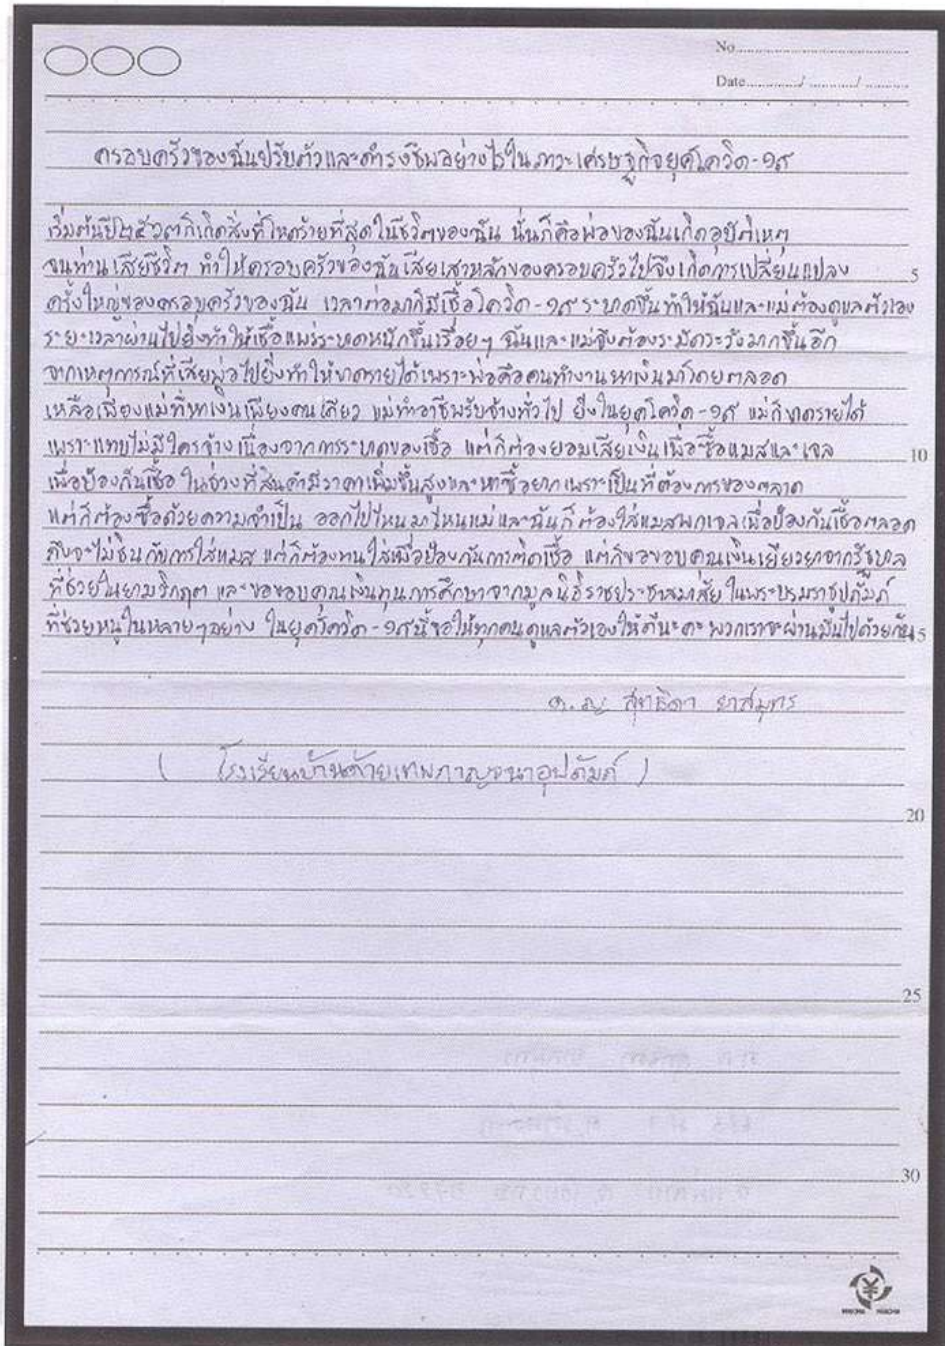 No
Date / /
ครอบครัวของฉันปรับตัวและดำรงชีพอย่างไรในภาวะเศรษฐกิจยุคโควิด-๑๙
เริ่มต้นปี๒๕๖๓ก็เกิดสิ่งที่โหดร้ายที่สุดในชีวิตของฉัน นั่นก็คือพ่อของฉันเกิดอุบัติเหตุ
จนท่านเสียชีวิต ทำให้ครอบครัวของฉันเสียเสาหลักของครอบครัวไปจึงเกิดการเปลี่ยนแปลง 5
ครั้งใหญ่ของครอบครัวของฉัน เวลาต่อมาก็มีเชื้อโควิด-๑๙ระบาดขึ้นทำให้ฉันและแม่ต้องดูแลตัวเอง
ระยะเวลาผ่านไปยิ่งทำให้เชื้อแพร่ระบาดหนักขึ้นเรื่อยๆ ฉันและแม่จึงต้องระมัดระวังมากขึ้นอีก
จากเหตุการณ์ที่เสียพ่อไปยิ่งทำให้ขาดรายได้เพราะพ่อคือคนทำงานหาเงินมาโดยตลอด
เหลือเพียงแม่ที่หาเงินเพียงคนเดียว แม่ทำอาชีพรับจ้างทั่วไป ยิ่งในยุคโควิด-๑๙ แม่ก็ขาดรายได้
เพราะแทบไม่มีใครจ้างเนื่องจากการระบาดของเชื้อ แต่ก็ต้องยอมเสียเงินเพื่อซื้อแมสและเจล 10
เพื่อป้องกันเชื้อ ในช่วงที่สินค้ามีราคาเพิ่มขึ้นสูงและหาซื้อยากเพราะเป็นที่ต้องการของตลาด
แต่ก็ต้องซื้อด้วยความจำเป็น ออกไปไหนมาไหนแม่และฉันก็ต้องใส่แมสพกเจลเพื่อป้องกันเชื้อตลอด
ถึงจะไม่ชินกับการใส่แมส แต่ก็ต้องทนใส่เพื่อป้องกันการติดเชื้อ แต่ก็ขอขอบคุณเงินเยียวยาจากรัฐบาล
ที่ช่วยในยามวิกฤตา และขอขอบคุณเงินทุนการศึกษาจากมูลนิธิราชประชาสมาสัย ในพระบรมราชูปถัมภ์
ที่ช่วยหนูในหลายๆอย่าง ในยุคโควิด-๑๙นี้ขอให้ทุกคนดูแลตัวเองให้ดีนะคะ พวกเราจะผ่านมันไปด้วยกัน 5
ด.ญ สุทธิดา ยาสมุทร
( โรงเรียนบ้านด้ายเทพกาญจนาอุปถัมภ์ )
20
25
30